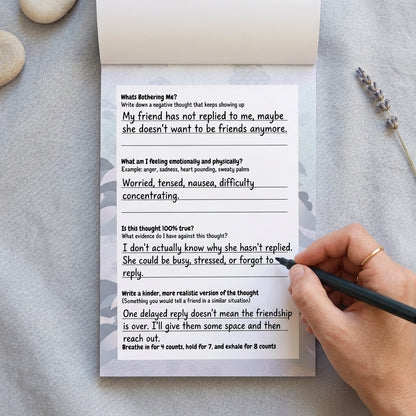 Whats Bothering Me?
Write down a negative thought that keeps showing up
My friend has not replied to me, maybe
she doesn't want to be friends anymore.
What am I feeling emotionally and physically?
Example: anger, sadness, heart pounding, sweaty palms
Worried, tensed, nausea, difficulty
concentrating.
Is this thought 100% true?
What evidence do I have against this thought?
I don't actually know why she hasn't replied.
She could be busy, stressed, or forgot to
reply.
Write a kinder, more realistic version of the thought
(Something you would tell a friend in a similar situation)
One delayed reply doesn't mean the friendship
is over. I'll give them some space and then
reach out.
Breathe in for 4 counts, hold for 7, and exhale for 8 counts